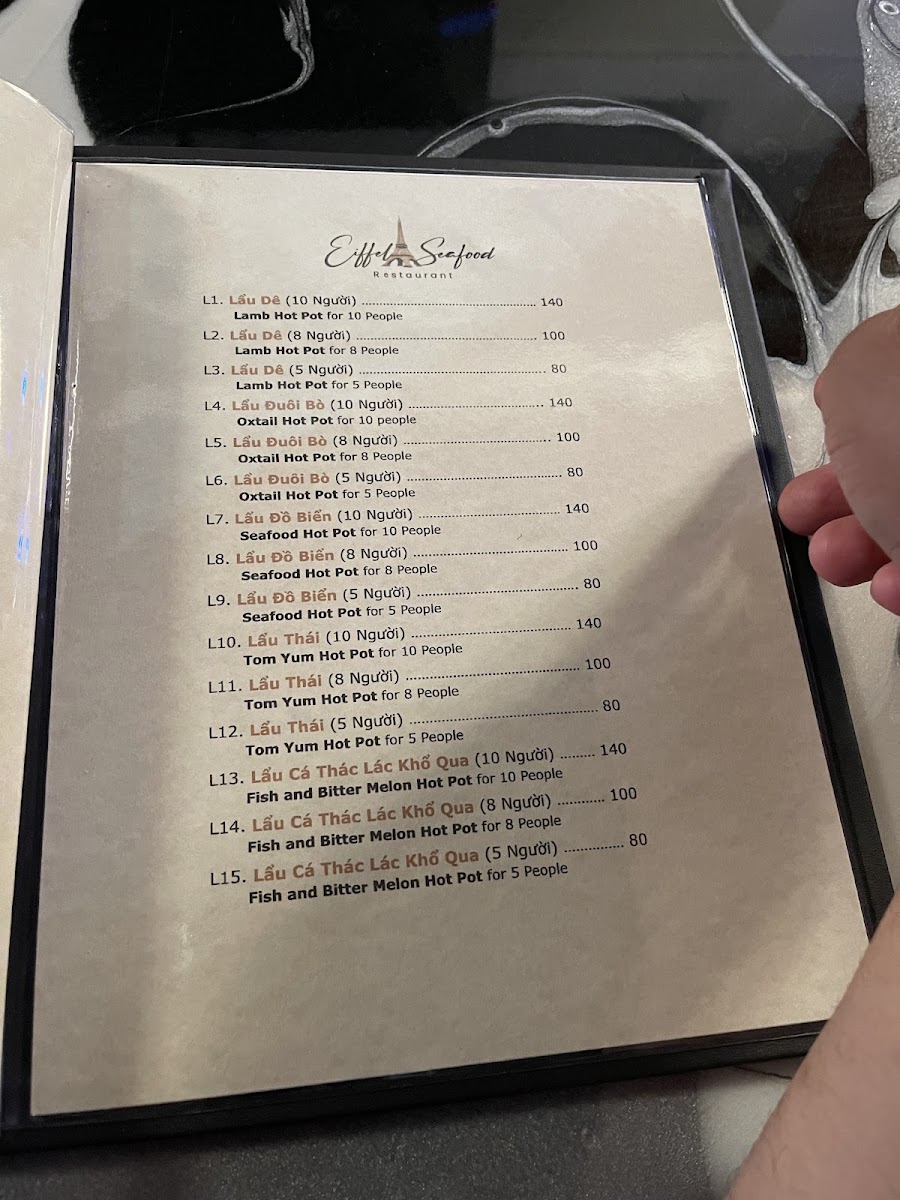 Eiffel Seafood
Restaurant
L1. Lẩu Dê (10 Người) ........ 140
Lamb Hot Pot for 10 People
L2. Lẩu Dê (8 Người) ........ 100
Lamb Hot Pot for 8 People
L3. Lẩu Dê (5 Người) ........ 80
Lamb Hot Pot for 5 People
L4. Lẩu Đuôi Bò (10 Người) ........ 140
Oxtail Hot Pot for 10 people
L5. Lẩu Đuôi Bò (8 Người) ........ 100
Oxtail Hot Pot for 8 People
L6. Lẩu Đuôi Bò (5 Người) ........ 80
Oxtail Hot Pot for 5 People
L7. Lẩu Đồ Biển (10 Người) ........ 140
Seafood Hot Pot for 10 People
L8. Lẩu Đồ Biển (8 Người) ........ 100
Seafood Hot Pot for 8 People
L9. Lẩu Đồ Biển (5 Người) ........ 80
Seafood Hot Pot for 5 People
L10. Lẩu Thái (10 Người) ........ 140
Tom Yum Hot Pot for 10 People
L11. Lẩu Thái (8 Người) ........ 100
Tom Yum Hot Pot for 8 People
L12. Lẩu Thái (5 Người) ........ 80
Tom Yum Hot Pot for 5 People
L13. Lẩu Cá Thác Lác Khổ Qua (10 Người) ......... 140
Fish and Bitter Melon Hot Pot for 10 People
L14. Lẩu Cá Thác Lác Khổ Qua (8 Người) ............ 100
Fish and Bitter Melon Hot Pot for 8 People
L15. Lẩu Cá Thác Lác Khổ Qua (5 Người) ............... 80
Fish and Bitter Melon Hot Pot for 5 People